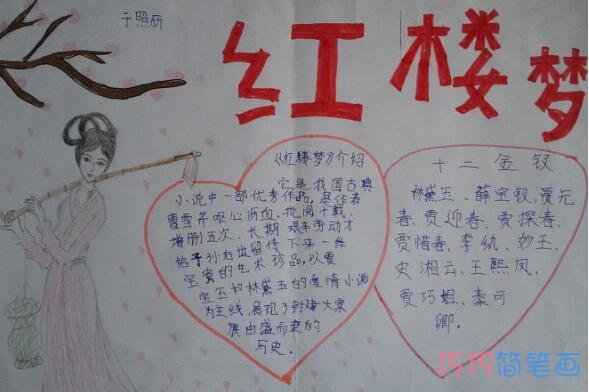 于照研
红楼梦
《红楼梦》介绍
它是我国古典
小说中一部优秀作品,是作者
曹雪芹呕心沥血,批阅十载、
增删五次、长期艰辛劳动才
给予孙后世留传下来一件
宝贵的艺术珍品,以贾
宝玉和林黛玉的爱情小说
为主线,展现了封建大家
族由盛而衰的
历史。
十二金钗
林黛玉、薛宝钗、贾元
春、贾迎春、贾探春、
贾惜春、李纨、妙玉、
史湘云、王熙凤、
贾巧姐、秦可
卿。
巧巧简笔画